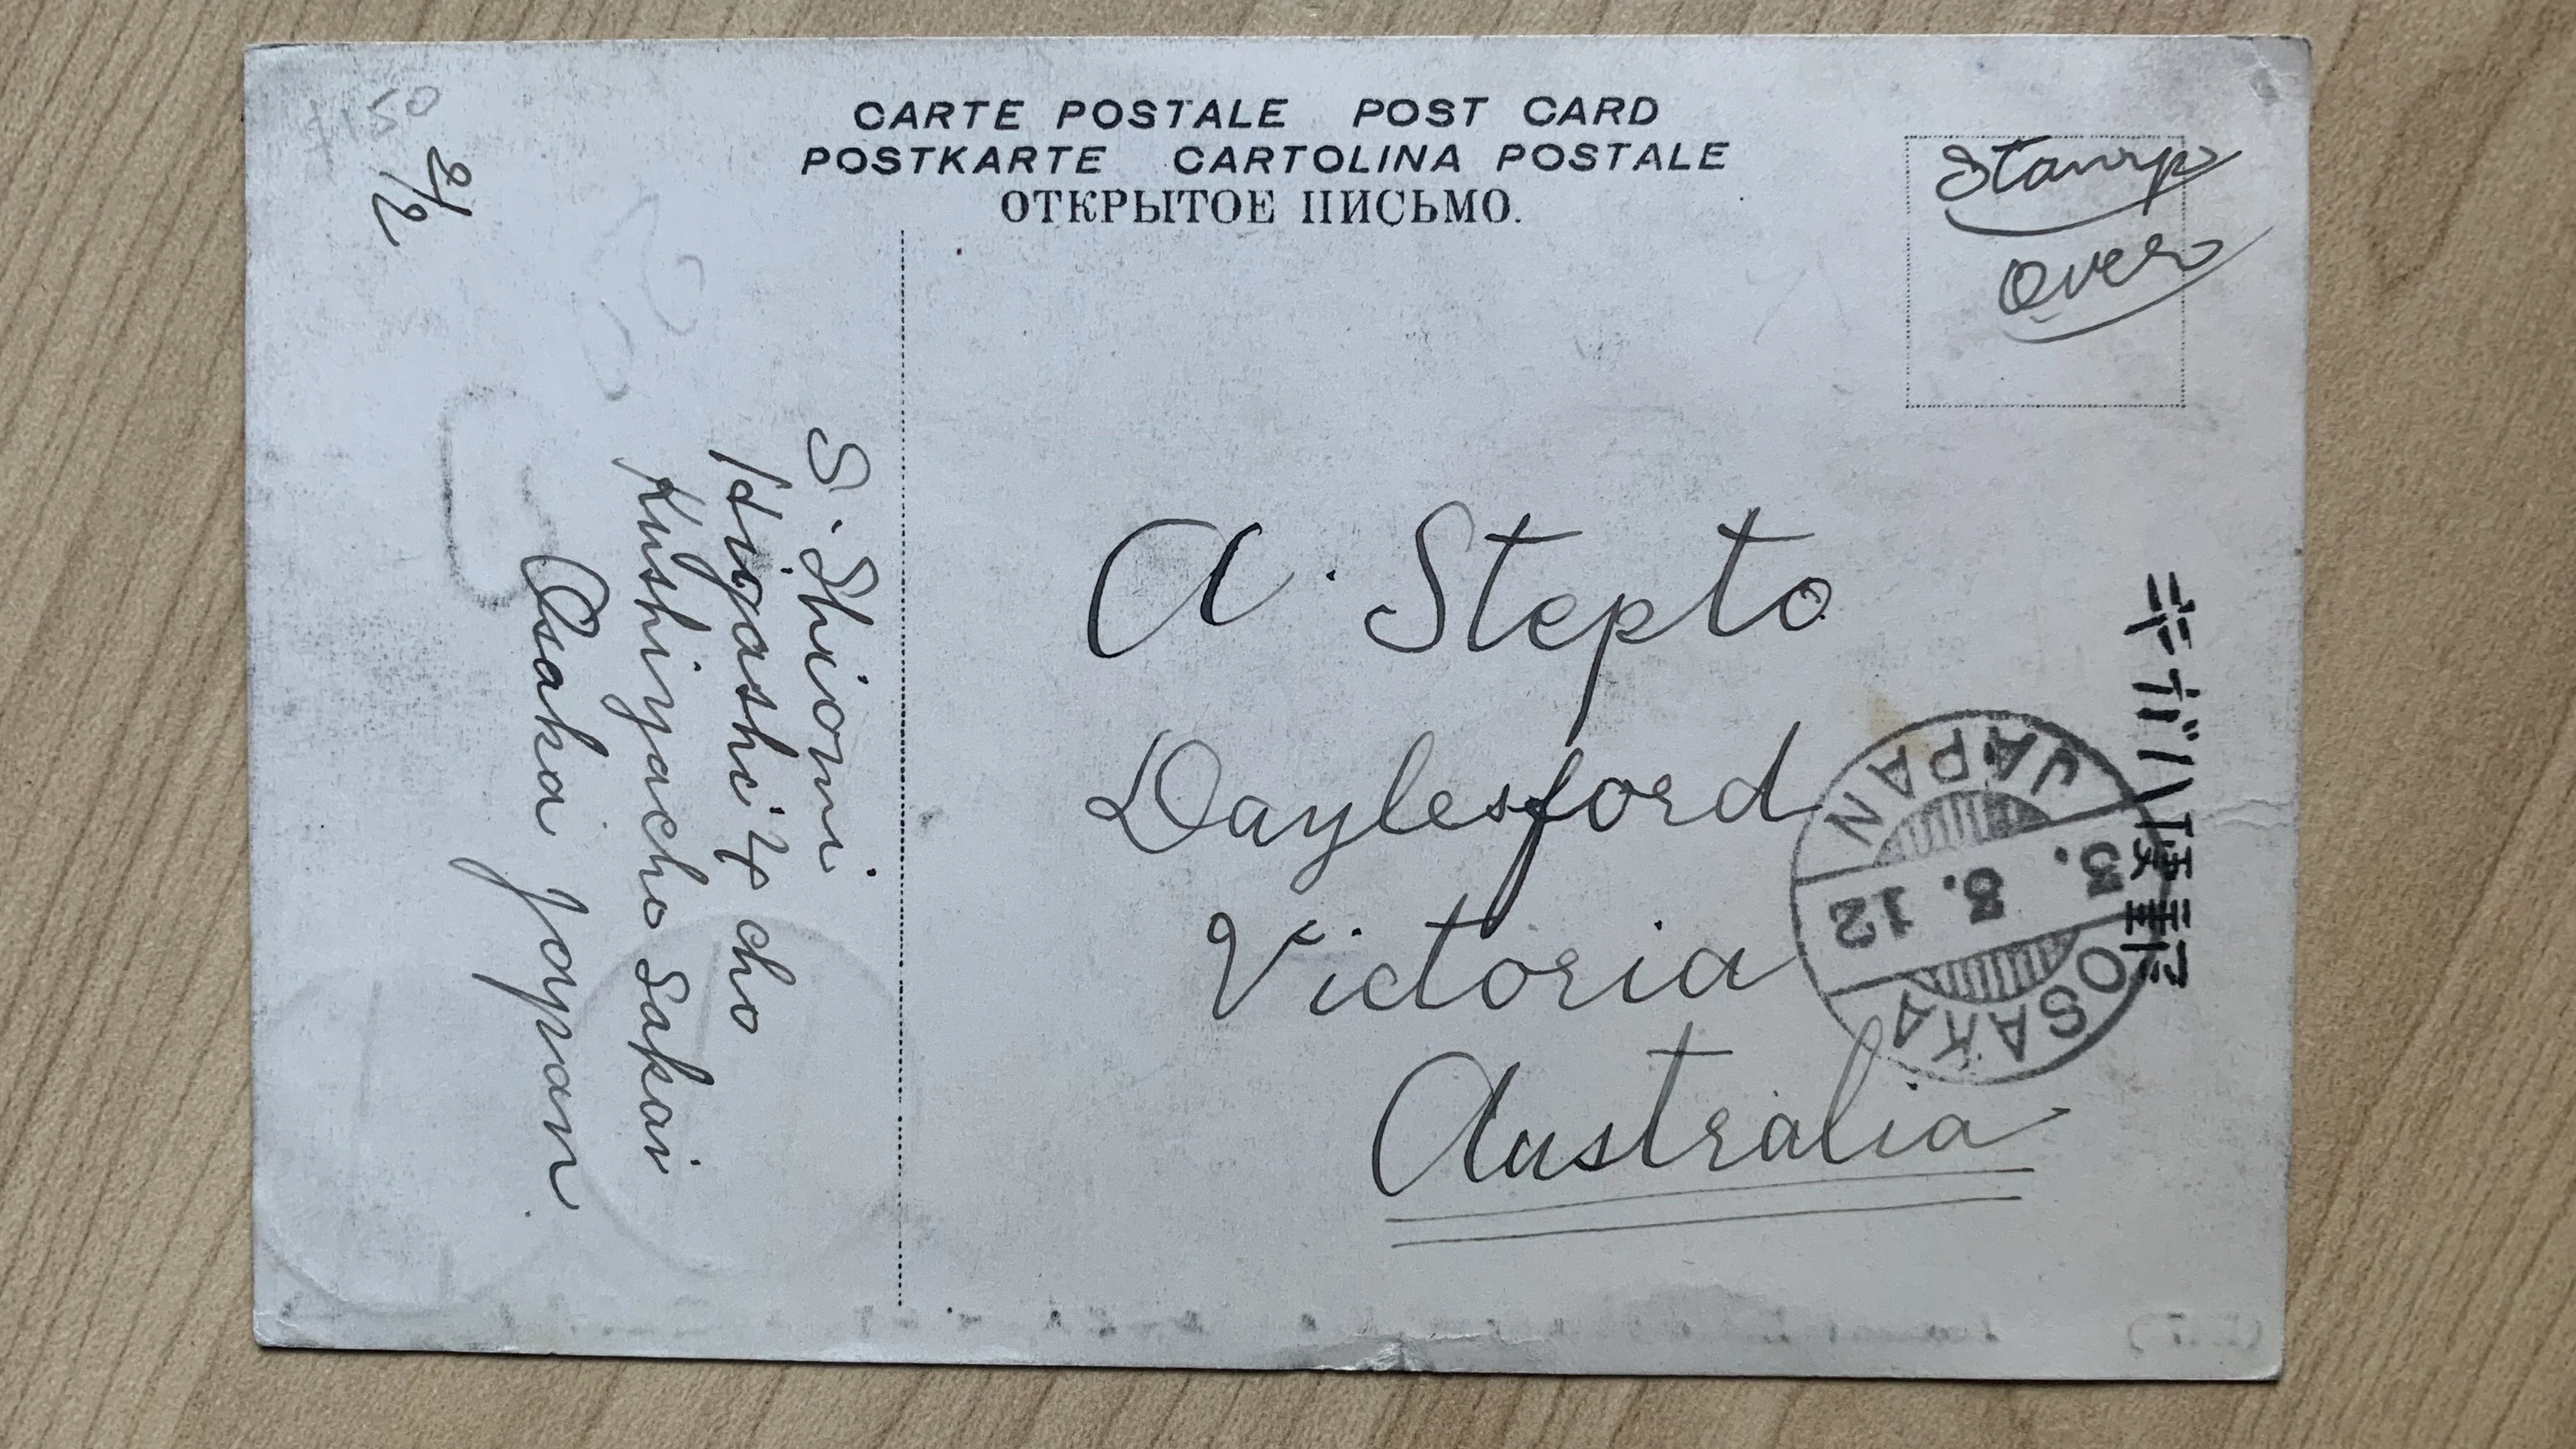 CARTE POSTALE POST CARD
POSTKARTE CARTOLINA POSTALE
ОТКРЫТОЕ ПИСЬМО.
Stamp
Over
A. Stepto
Daylesford
Victoria
Australia
JAPAN
3. 3. 12
OSAKA
S. Shiomi.
Higashi 4 cho
Kushiyacho Sakai
Osaka Japan
2/2
150